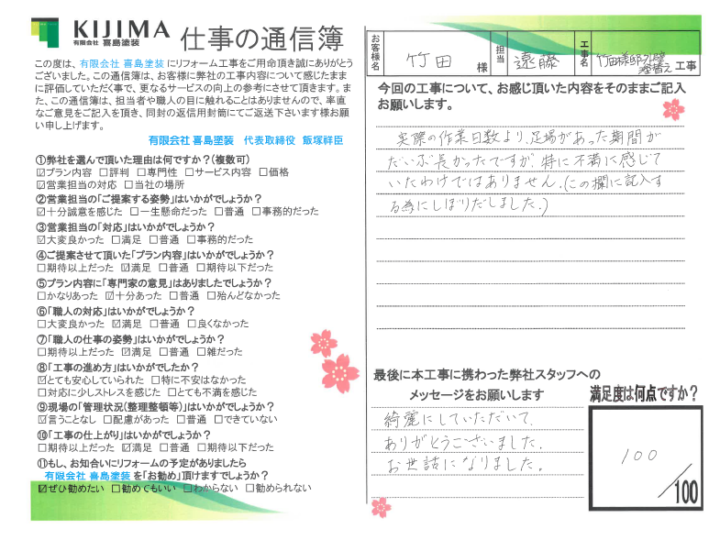 KIJIMA
有限会社 喜島塗装
仕事の通信簿
この度は、有限会社 喜島塗装 にリフォーム工事をご用命頂き誠にありがとう
ございました。この通信簿は、お客様に弊社の工事内容について感じたまま
に評価していただく事で、更なるサービスの向上の参考にさせて頂きます。ま
た、この通信簿は、担当者や職人の目に触れることはありませんので、率直
なご意見をご記入を頂き、同封の返信用封筒にてご返送下さいます様お願
い申し上げます。
有限会社 喜島塗装 代表取締役 飯塚祥臣
①弊社を選んで頂いた理由は何ですか？(複数可)
☑プラン内容 □評判 □専門性 □サービス内容 □価格
☑営業担当の対応 □当社の場所
②営業担当の「ご提案する姿勢」はいかがでしょうか？
☑十分誠意を感じた □一生懸命だった □普通 □事務的だった
③営業担当の「対応」はいかがでしょうか？
☑大変良かった □満足 □普通 □事務的だった
④ご提案させて頂いた「プラン内容」はいかがでしょうか？
□期待以上だった ☑満足 □普通 □期待以下だった
⑤プラン内容に「専門家の意見」はありましたでしょうか？
□かなりあった ☑十分あった □普通 □殆んどなかった
⑥「職人の対応」はいかがでしょうか？
□大変良かった ☑満足 □普通 □良くなかった
⑦「職人の仕事の姿勢」はいかがでしょうか？
□期待以上だった ☑満足 □普通 □雑だった
⑧「工事の進め方」はいかがでしたか？
☑とても安心していられた □特に不安はなかった
□対応に少しストレスを感じた □とても不満を感じた
⑨現場の「管理状況(整理整頓等)」はいかがでしょうか？
☑言うことなし □配慮があった □普通 □できていない
⑩「工事の仕上がり」はいかがでしょうか？
□期待以上だった ☑満足 □普通 □期待以下だった
⑪もし、お知合いにリフォームの予定がありましたら
有限会社 喜島塗装 を「お勧め」頂けますでしょうか？
☑ぜひ勧めたい □勧めてもいい □わからない □勧められない
お客様名 竹田 様 担当 遠藤 工事名 竹田様邸外壁塗替え 工事
今回の工事について、お感じ頂いた内容をそのままご記入
お願いします。
実際の作業日数より、足場があった期間が
だいぶ長かったですが、特に不満に感じて
いたわけではありません。(この欄に記入す
る為にしぼりだしました。)
最後に本工事に携わった弊社スタッフへの
メッセージをお願いします
綺麗にしていただいて、
ありがとうございました。
お世話になりました。
満足度は何点ですか？
100
/100